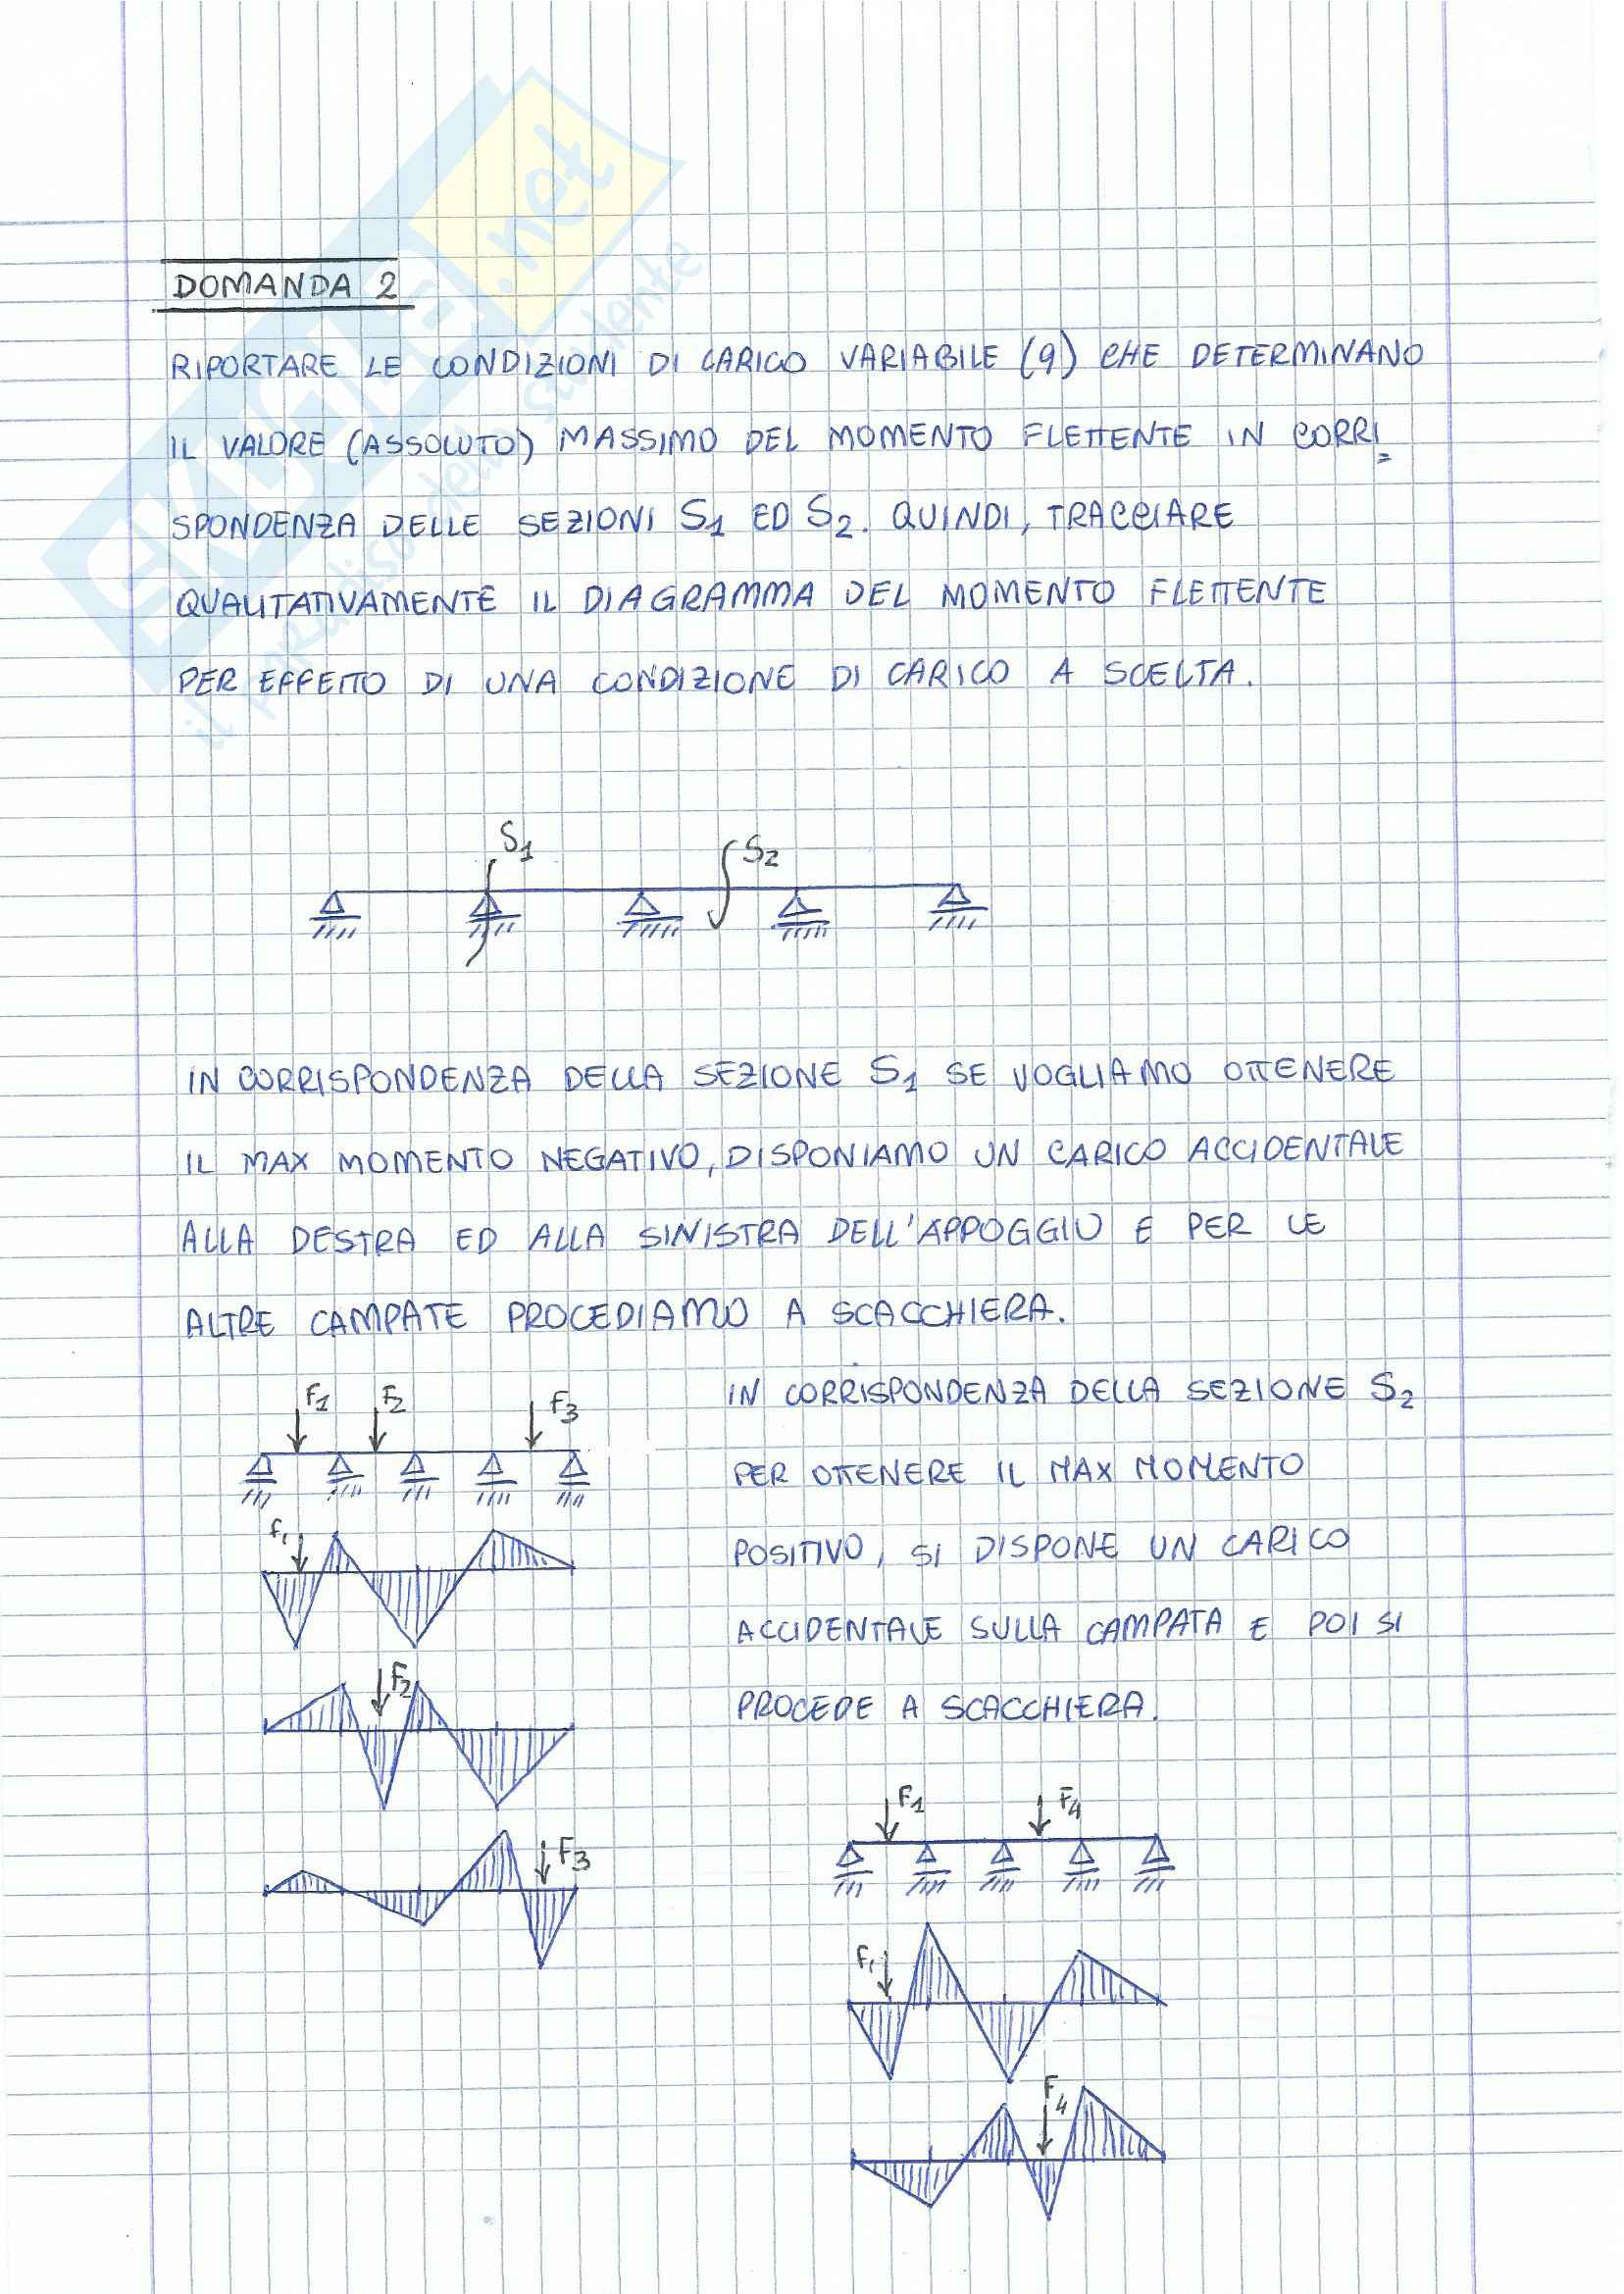 DOMANDA 2
RIPORTARE LE CONDIZIONI DI CARICO VARIABILE (q) CHE DETERMINANO
IL VALORE (ASSOLUTO) MASSIMO DEL MOMENTO FLETTENTE IN CORRI=
SPONDENZA DELLE SEZIONI S1 ED S2. QUINDI, TRACCIARE
QUALITATIVAMENTE IL DIAGRAMMA DEL MOMENTO FLETTENTE
PER EFFETTO DI UNA CONDIZIONE DI CARICO A SCELTA.
S1 S2
IN CORRISPONDENZA DELLA SEZIONE S1 SE VOGLIAMO OTTENERE
IL MAX MOMENTO NEGATIVO, DISPONIAMO UN CARICO ACCIDENTALE
ALLA DESTRA ED ALLA SINISTRA DELL'APPOGGIO E PER LE
ALTRE CAMPATE PROCEDIAMO A SCACCHIERA.
F1 F2 F3
F1
F2
F3
IN CORRISPONDENZA DELLA SEZIONE S2
PER OTTENERE IL MAX MOMENTO
POSITIVO, SI DISPONE UN CARICO
ACCIDENTALE SULLA CAMPATA E POI SI
PROCEDE A SCACCHIERA.
F1 F4
F1
F4
SKUOLA.net
il paradiso dello studente